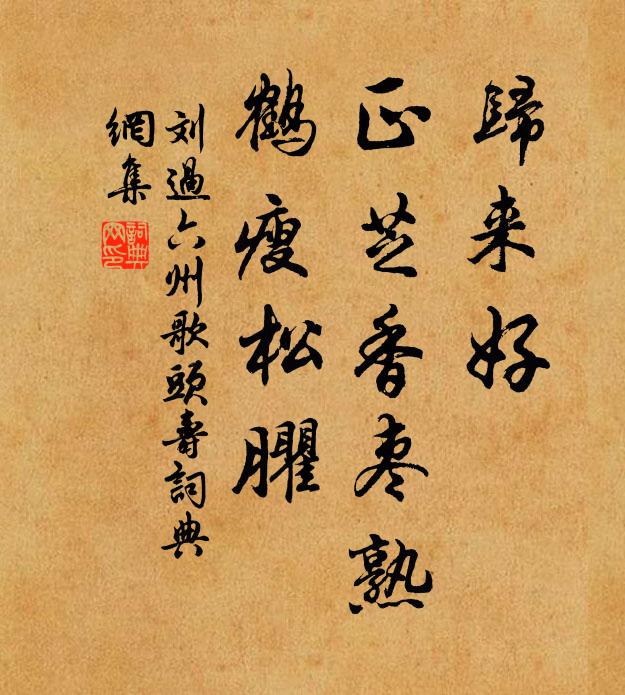 歸来好
正芝香枣熟
鶴瘦松臞
刘過六州歌頭寿詞典
網集
詞典
网印